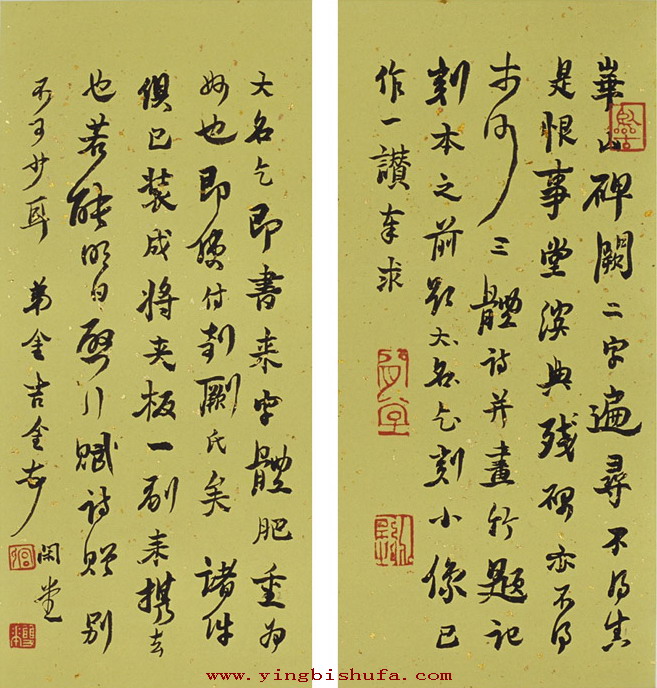 華山碑闕二字遍尋不得真
是恨事堂溪典殘碑亦不得
三體詩并畫竹題記
刻本之前 大名乞刻小像已
作一讚奉求
大名乞即書來字體肥重為
妙也即便付剞劂氏矣諸件
俱已裝成將夾板一副來攜去
也若能明日啟行賦詩贈別
不可少耳 弟金吉金頓
閑堂
www.yingbishufa.com